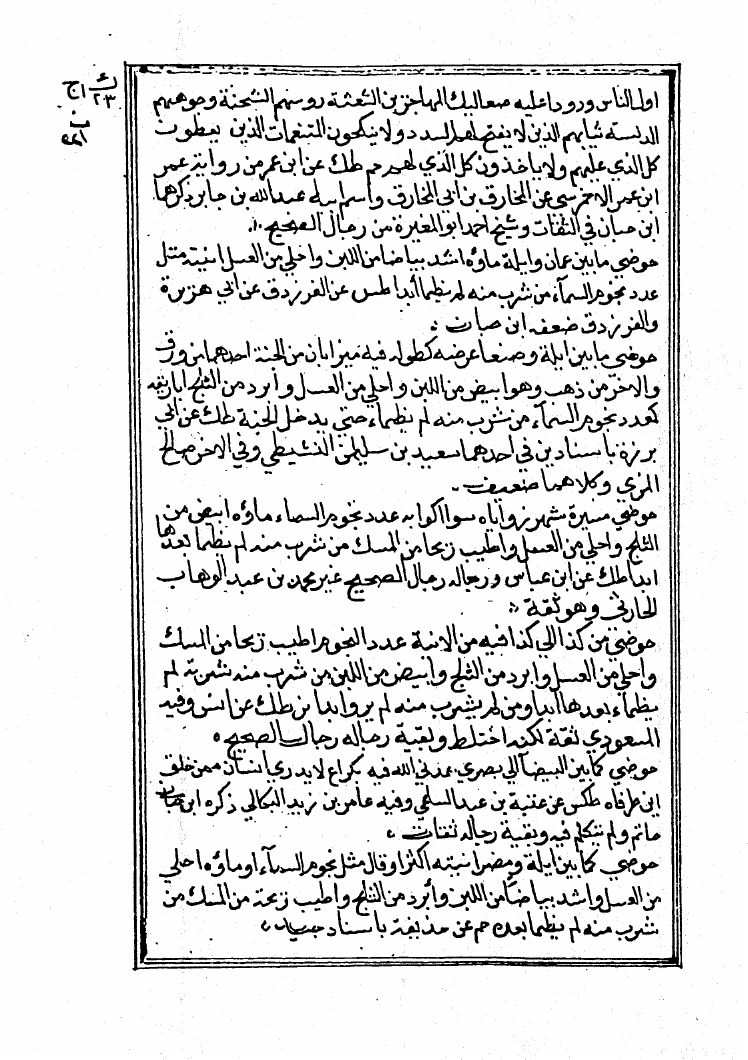 ك ٢٣ ج١
ب
٢٢١
اول الناس ورودا عليه صعاليك المهاجرين الشعثة روسهم الشحبة وجوههم
الدنسة ثيابهم الذين لا يفتح لهم السدد ولا ينكحون المتنعمات الذين يعطون
كل الذي عليهم ولا ياخذون كل الذي لهم حم طك عن ابن عمر من رواية عمر
ابن عمر الاحمرسي عن المخارق بن ابي المخارق واسم ابيه عبد الله بن جابر ذكرها
ابن حبان في الثقات وشيخ احمد ابو المغيرة من رجال الصحيح
حوضي ما بين عمان وايلة ماؤه اشد بياضا من اللبن واحلي من العسل انيته مثل
عدد نجوم السمآء من شرب منه لم يظمأ ابدا طس عن الفرزدق عن ابي هريرة
والفرزدق ضعفه ابن حبان
حوضي ما بين ايلة وصنعا عرضه كطوله فيه ميزابان من الجنة احدهما من ورق
والاخر من ذهب وهو ابيض من اللبن واحلي من العسل وأبرد من الثلج اباريقه
كعدد نجوم السمآء من شرب منه لم يظماء حتى يدخل الجنة طك عن ابي
برزة باسنادين في احدهما سعيد بن سليمن النشيطي وفي الاخر صالح
المري وكلاهما ضعيف
حوضي مسيرة شهر زواياه سوا اكوابه عدد نجوم السماء ماؤه ابيض من
الثلج واحلي من العسل واطيب ريحا من المسك من شرب منه لم يظما بعدها
ابدا طك عن ابن عباس ورجاله رجال الصحيح غير محمد بن عبد الوهاب
الحارثي وهو ثقة
حوضي من كذا الي كذا فيه من الانية عدد النجوم اطيب ريحا من المسك
واحلي من العسل وابرد من الثلج وأبيض من اللبن من شرب منه شربة لم
يظماء بعدها أبدا ومن لم يشرب منه لم يرو ابدا بز طك عن انس وفيه
المسعودي ثقة لكنه اختلط وبقية رجاله رجال الصحيح
حوضي كما بين البيضا الي بصري يمدني الله فيه بكراع لا يدري انسان ممن خلق
اين طرفاه طكس عن عتبة بن عبد السلمي وفيه عامر بن زيد البكالي ذكره ابن
حاتم ولم يتكلم فيه وبقية رجاله ثقات
حوضي كما بين ايلة ومضر انيته اكثر او قال مثل نجوم السمآء او ماؤه احلي
من العسل واشد بياضا من اللبن وأبرد من الثلج واطيب ريحة من المسك من
شرب منه لم يظما بعده حم عن حذيفة باسناد جيد